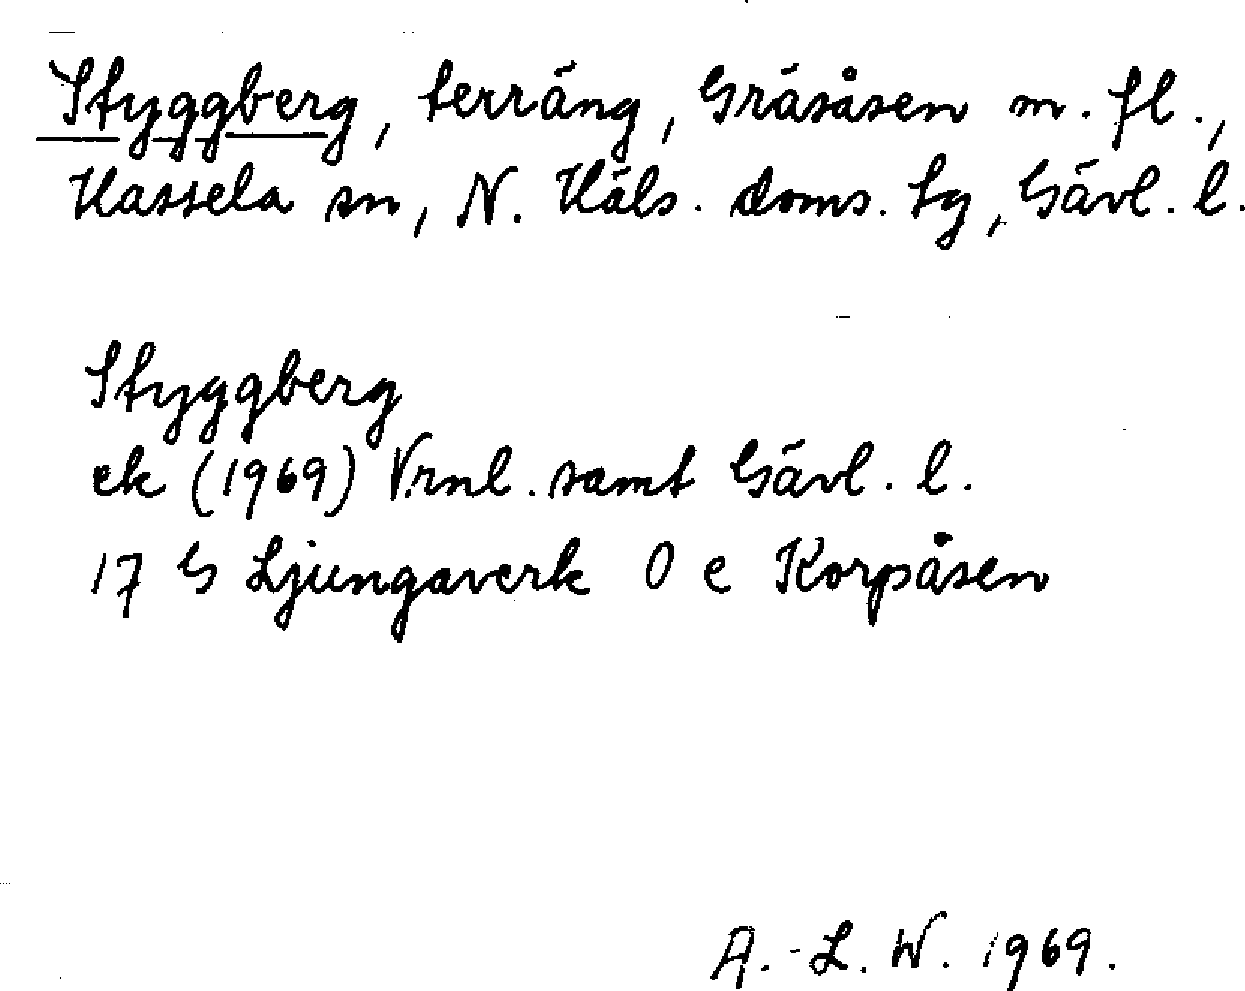 Styggberg, terräng, Gräsåsen m. fl.,
Hassela sn, N. Häls. doms. tg, Gävl. l.
Styggberg
ek (1969) Vrnl. samt Gävl. l.
17 G Ljungaverk O e Korpåsen
A.-L. W. 1969.